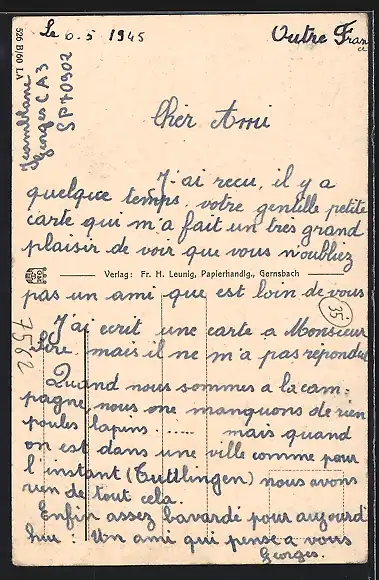 526 B/60 L.A
Le 6.5 1945
Outre Fran
ce
Jeanblanc
Georges CA3
SP 70902
Cher Ami
J'ai recu, il y a
quelque temps, votre gentille petite
carte qui m'a fait un très grand
plaisir de voir que vous n'oubliez
Verlag: Fr. H. Leunig, Papierhandlg., Gernsbach
pas un ami que est loin de vous
35
J'ai ecrit une carte a Monsieur
mais il ne m'a pas repondu
7562
Quand nous sommes a la cam-
pagne, nous one manquons de rien
poules lapins...... mais quand
on est dans une ville comme pour
l'instant (Tuttlingen) nous avons
rien de tout cela.
Enfin assez bavardé pour aujourd
hui : Un ami qui pense a vous
Georges.